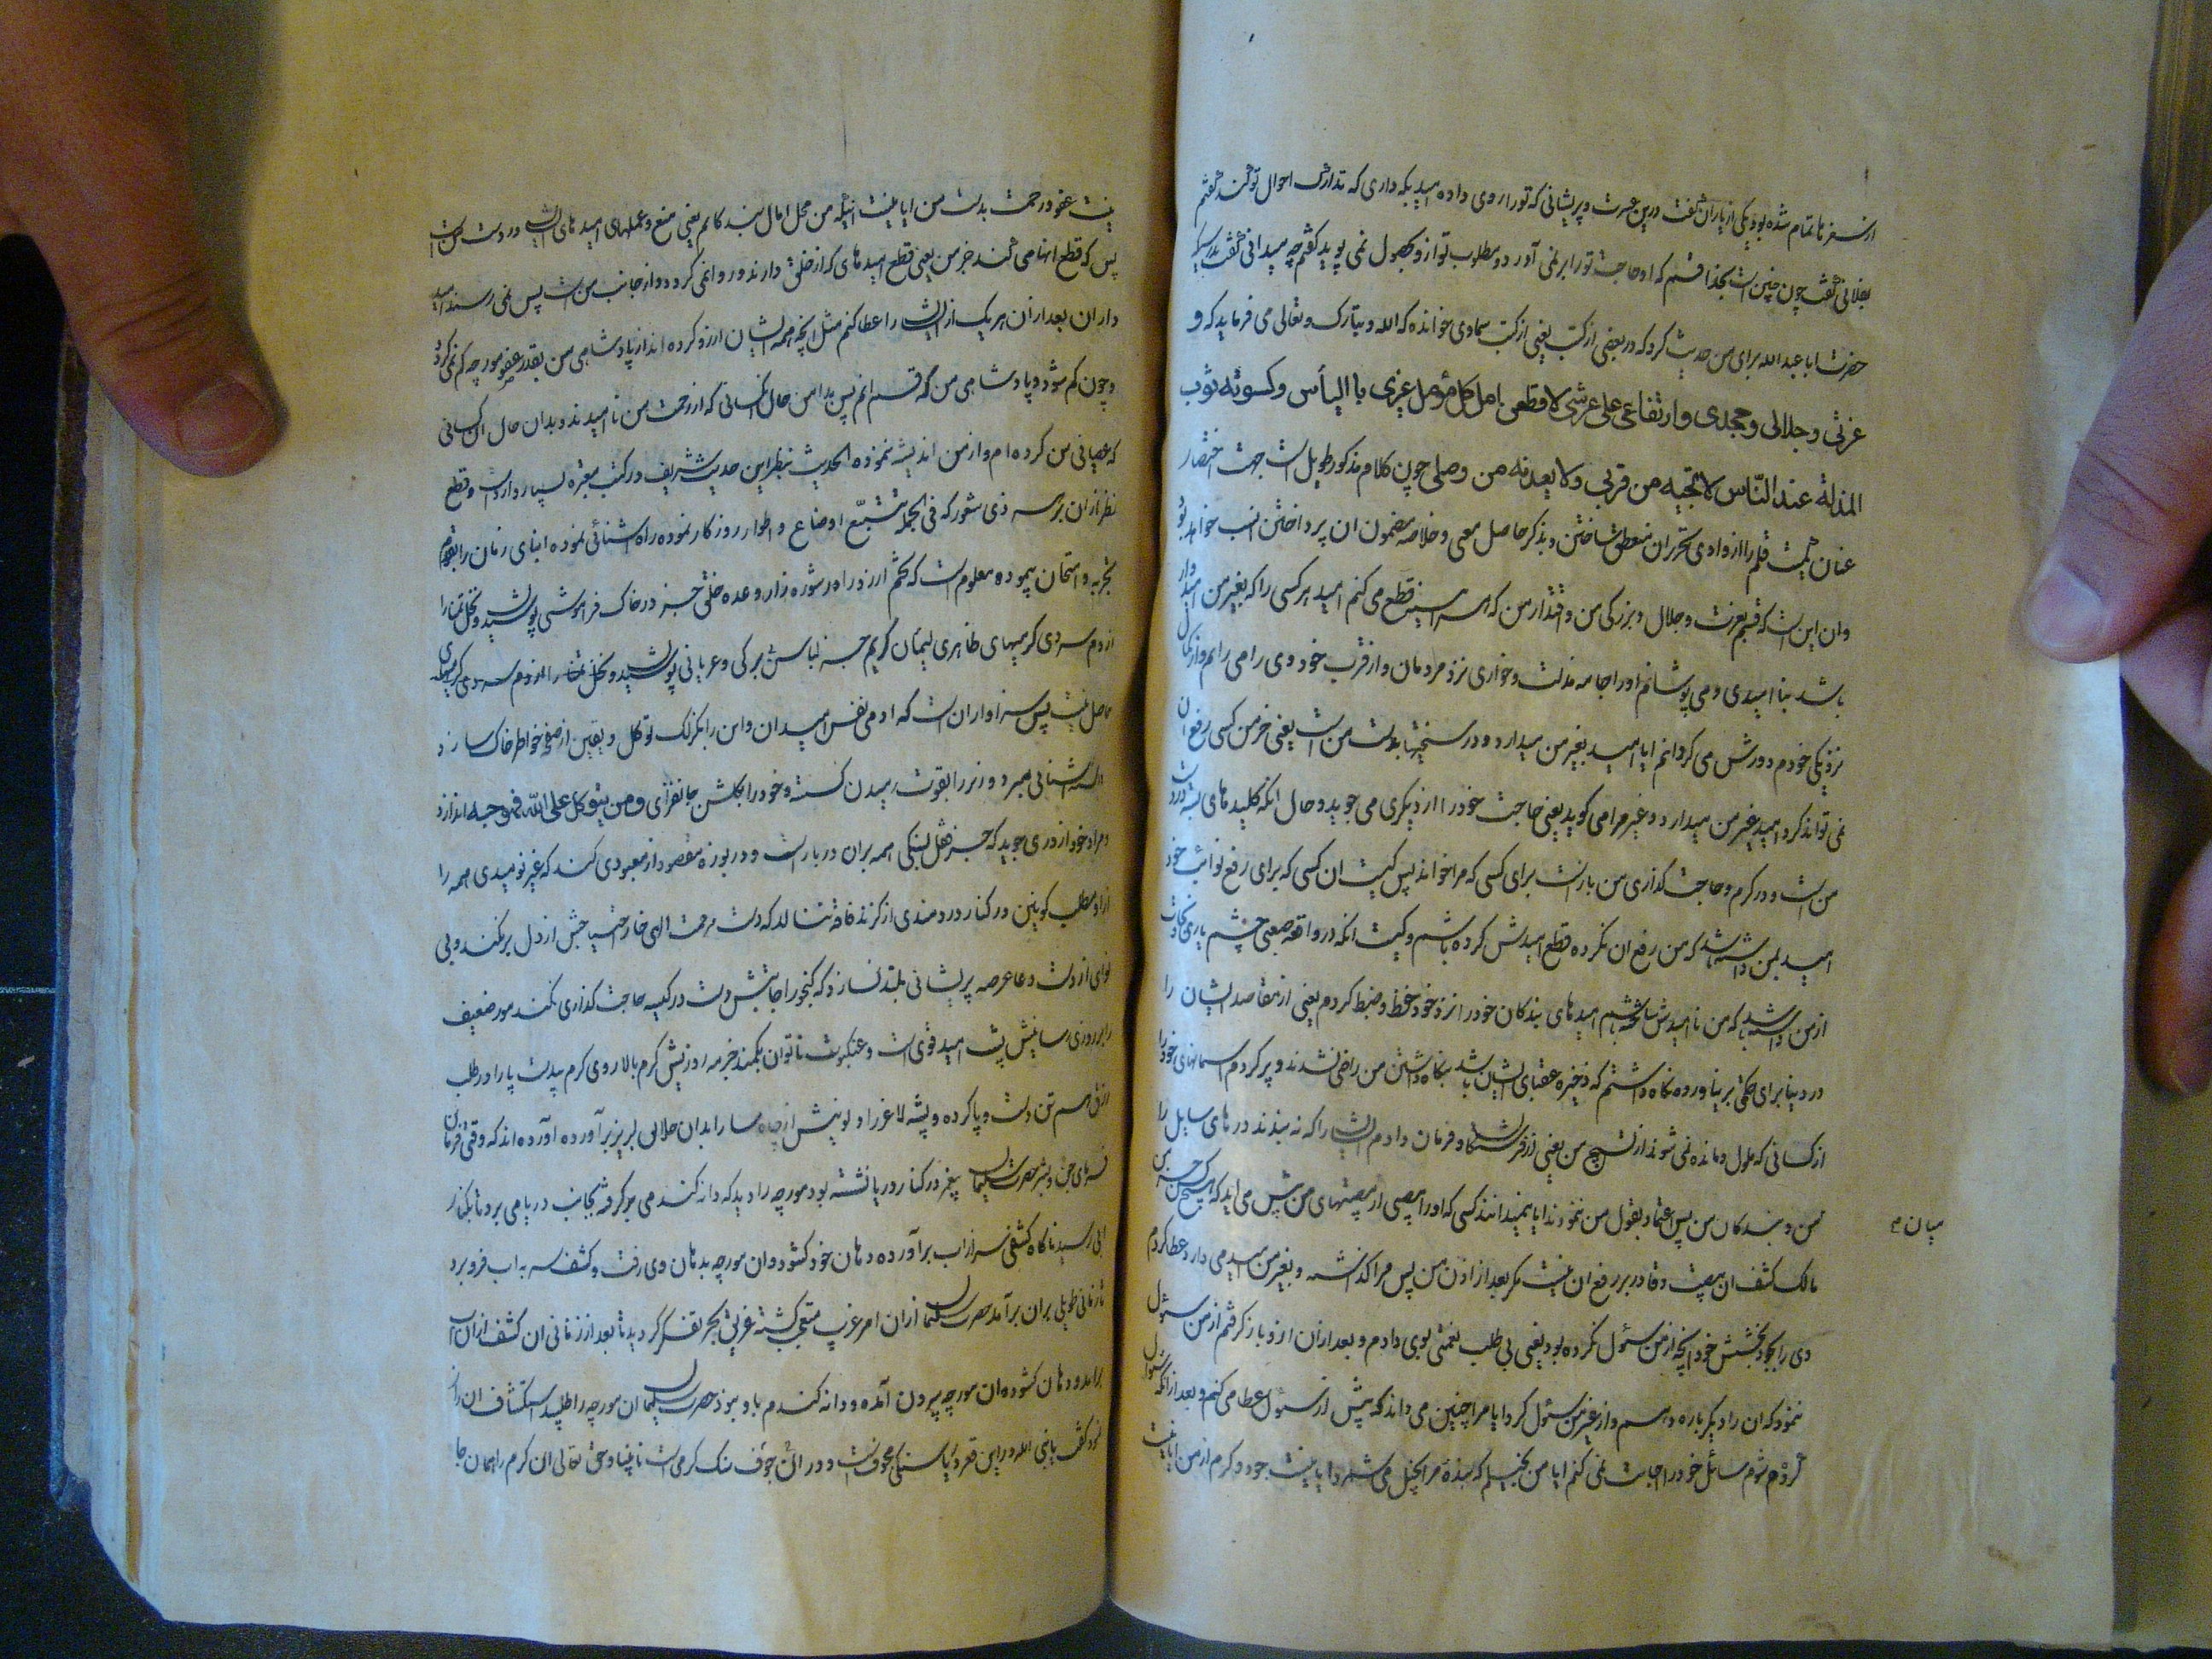 از سفر ناتمام شده بود یکی از یاران گفت درین عسرت و پریشانی که تو را روی داده امید بکه داری که تدارک احوال تو کند گفتم
بفلانی گفت چون چنین است بخدا قسم که او حاجت تو را بر نمی آورد و مطلوب تو ازو بحصول نمی پیوندد گفتم چه میدانی گفت
حضرت ابا عبد الله برای من حدیث کرد که در بعضی از کتب یعنی از کتب سماوی خوانده که الله تبارک و تعالی می فرماید که و
عزتی و جلالی و مجدی و ارتفاعی علی عرشی لاقطعن امل کل مؤمل غیری بالیأس و کسوته ثوب
المذلة عند النّاس لانجیه من قربی ولابعدنه من وصلی چون کلام مذکور طویل است جهت اختصار
عنان کمیت قلم را از وادی تحریر آن منعطف ساختن و بذکر حاصل معنی و خلاصه مضمون ان پرداختن انسب خواهد بود
و ان این است که قسم بعزت و جلال و بزرگی من و اقتدار من که قطع می کنم امید هر کسی را که بغیر من امیدوار
باشد بنا امیدی و می پوشانم او را جامه مذلت و خواری نزد مردمان و از قرب خود وی را می رانم و از
نزدیکی خودم دورش می گردانم ایا امید بغیر من میدارد و در سختیها بدست من است یعنی جز من کسی رفع ان
نمی تواند کرد امید بغیر من میدارد و در غیر مرا می کوبد یعنی حاجت خود را از دیگری می جوید و حال انکه کلیدهای بسته
من است و در کرم و حاجت گذاری من باز است برای کسی که مرا خواند پس کیست ان کسی که برای رفع نوائب خود
امید بمن داشته باشد که من رفع ان نکرده قطع امیدش کرده باشم و کیست انکه در واقعه صعبی چشم یاری
از من داشته باشد که من نا امیدش ساخته باشم امیدهای بندکان خود را نزد خود حفظ و ضبط کردم یعنی از مقاصد ایشان را
در دنیا برای حکمتی بر نیاورده نکاه داشتم که ذخیره عقبای ایشان باشد بنکاه داشتن من راضی نشدند و پر کردم اسمانهای خود را
از کسانی که ملول و مانده نمی شوند از تسبیح من یعنی از فرشتکان و فرمان دادم ایشان را که نه بندند درهای سایل را
میان
من و بندکان من پس اعتماد بقول من ننمودند ایا نمیدانند کسی که او را مصیبتی از مصیبتهای من پیش می اید که هیچکس جز من
مالک کشف ان مصیبت و قادر بر رفع ان نیست مکر بعد از اذن من پس مرا کذاشته و بغیر من امید می دارد عطا کردم
وی را بجود بخشش خود انچه از من سئول نکرده بود یعنی بی طلب نعمتی بوی دادم و بعد از ان ازو باز گرفتم از من سئول
ننمود که ان را دیکر باره دهم و از غیر من سئول کرد ایا مرا چنین می داند که پیش از سئول عطا می کنم و بعد از انکه سئول
کرده شوم سائل خود را اجابت نمی کنم ایا من بخیلم که بندۀ مرا بخیل می شمرد ایا نیست جود و کرم از من ایا نیست
نیست عفو و رحمت بدست من ایا نیست اینکه من محل امال بندکانم یعنی منبع و عملهای امیدهای ایشان در دست من است
پس که قطع انها می کند جز من یعنی قطع امیدهای که از خلق دارند و روا نمی گردد از جانب من است پس نمی رسند امید
داران بعد از ان هر یک از ایشان را عطا کنم مثل انچه همه ایشان ارزو کرده اند از پادشاهی من بقدر عضو مورچه کم نمی کردد
و چون کم شود پادشاهی من که قسم انم پس بدا من حال کسانی که از رحمت من نا امیدند و بدان حال ان کسانی
که عصیانی من کرده ام و از من اندیشه ننموده الحدیث نظیر این حدیث شریف در کتب معتبره بسیار وارد است و قطع
نظر از ان بر هر ذی شعور که فی الجمله تتبّع اوضاع و اطوار روزکار نموده راه اشنائی نموده ابنای زمان را بقدم
تجربه و امتحان پیموده معلوم است که تخم ارزو را در شوره زار وعده خلق جز در خاک فراموشی پوشید و نخل تمنا را
از دم سردی کریمهای ظاهری لئیمان کریم جز لباس بی برکی و عریانی پوشید و نخل تمنا را از دم سردی
حاصل نیست پس سزاوار ان است که ادمی نفس امید ان و این را بکزلک توکل و یقین از صفحه خاطر خاک سازد
اشنائی مبرم و زید را بقوت رمیدن کسته و خود را بکلشن جانفزای و من یتوکل علی الله فهو حسبه اندازد
مراد خود از دری جوید که جز قفل بستکی همه بران دربار است و دریوزه مقصود از معبودی کند که غیر نومیدی همه را
از او مطلب کو بنین در کنار دردمندی از کزند فاقه ننالد که دست رحمت الهی خار احتیاجش از دل بر نکند و بی
نوای از دست دعا عرصه پریشانی بلند نسازد که کنجور اجابتش دست در کیسه حاجت گذاری نکند مور ضعیف
را بر روزی رسانیش پشت امید قوی است و عنکبوت ناتوان بکمند جز مه روزیش کرم بالا روی کرم بیدست و پا را در طلب
رزق هم تن دست و پا کرده و پشه لاغر را و لو نیش از بدان حلالی لبریز بر آورده آورده اند که وقتی فرمان
فرمای جن و بشر حضرت سلیمان پیغمبر در کنار دریا نشسته بود مورچه را دید که دانه کندمی بر کرفته بجانب دریا می برد تا بکنار
ابی رسید ناکاه کشفی سر از اب برآورده دهان خود کشود و ان مورچه بدهان وی رفت و کشف سر به اب فرو برد
تا زمانی طویل بران برآمد حضرت سلیمان ازان امر غریب متعجب کشته غریق بحر تفکر کردید تا بعد از زمانی ان کشف از ان اب
برامد و دهان کشوده ان مورچه بیرون آمده و دانه کندم با و نبود حضرت سلیمان ان مورچه را طلبید استکشاف ان راز
نمود گفت یا نبی الله در این قعر دریا سنکی مجوف است و در ان جوف سنک کرمی است نابینا و حق تعالی ان کرم را همان جا